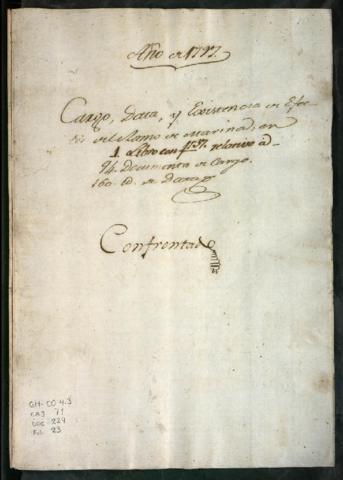 Año de 1797.
Cargo, Data, y Existencia de Efec-
tos del Ramo de Marina, en
1. Libro con relativo a
94. documentos de Cargo.
160. id. de Data
Confrontado
GH-CO 4.3
caj 71
doc 224
fol 23